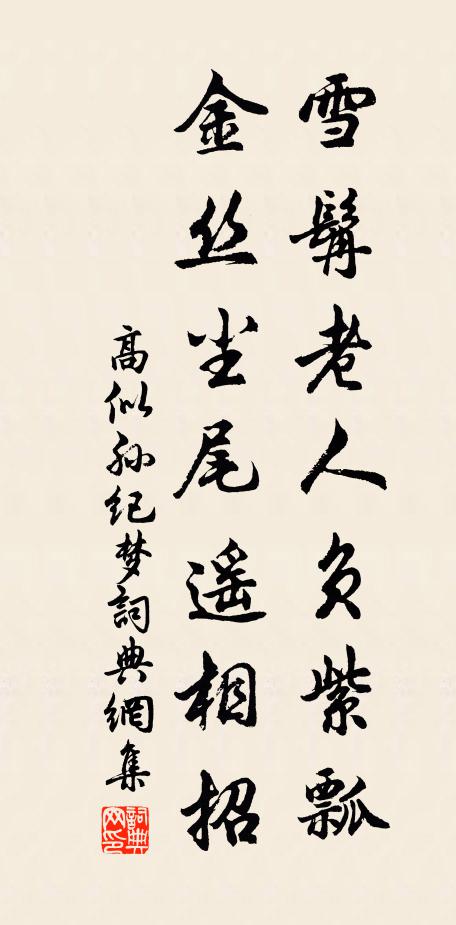 雪髯老人负紫瓢
金丝尘尾遥相招
高似孙纪梦詞典網集
詞典网印